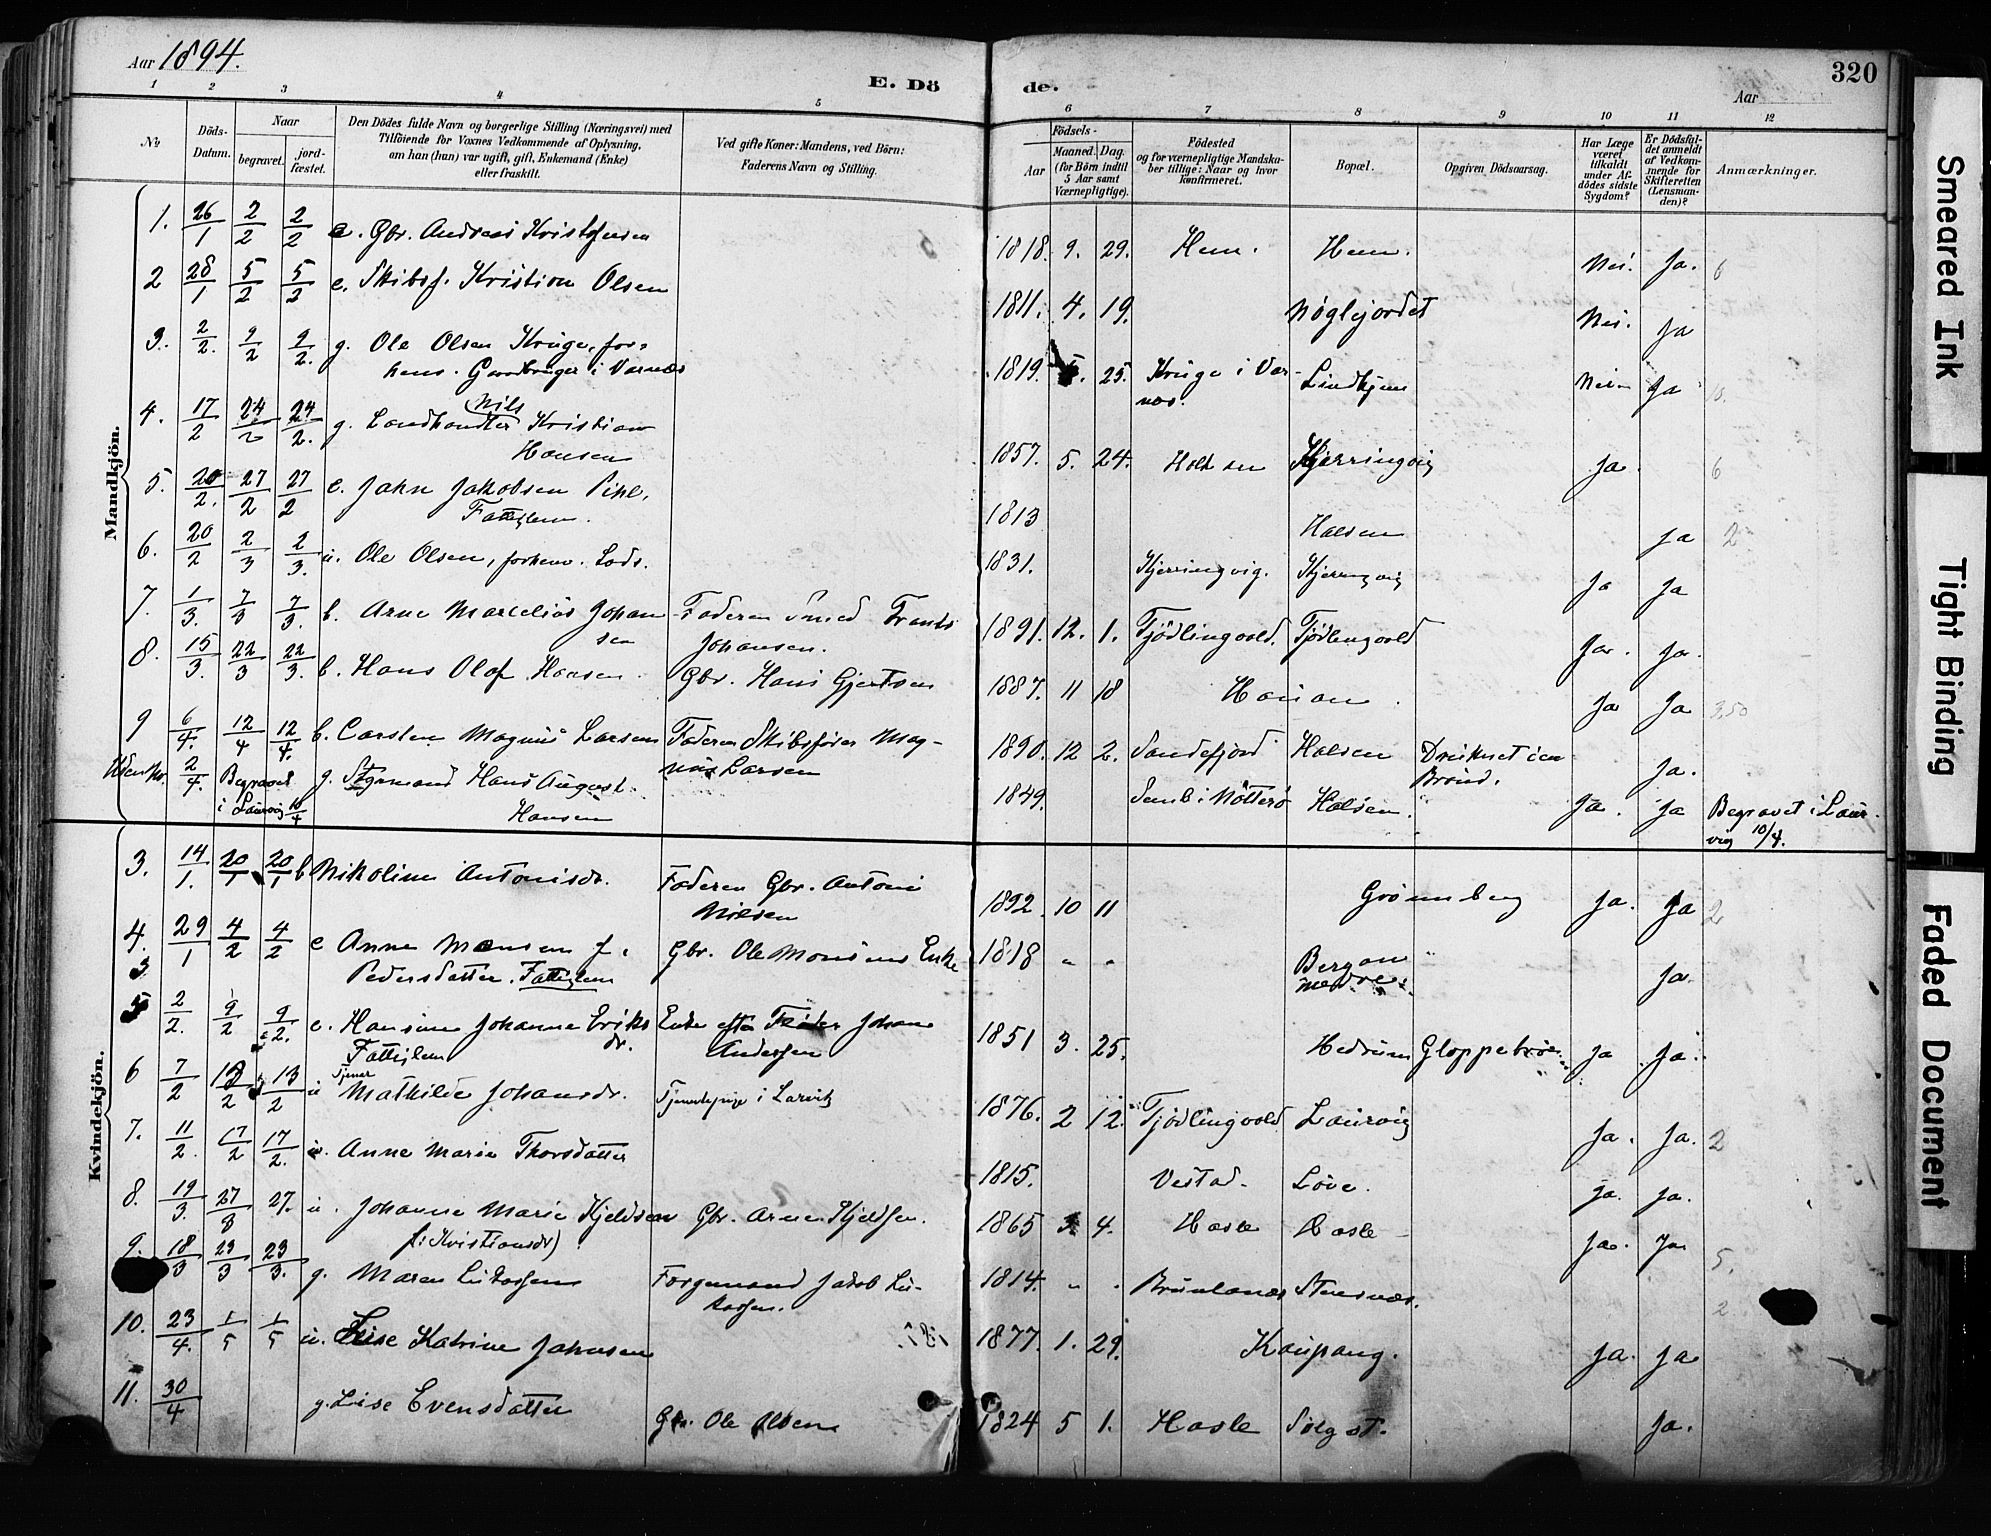 Aar 1894.
E. Dö
de.
Aar
320
1 2 3 4 5 6 7 8 9 10 11 12
No
Döds-Datum.
Naar
begravet.
jord-fæstet.
Den Dödes fulde Navn og borgerlige Stilling (Næringsvei) med
Tilföiende for Voxnes Vedkommende af Oplysning,
om han (hun) var ugift, gift, Enkemand (Enke)
eller fraskilt.
Ved gifte Koner: Mandens, ved Börn:
Faderens Navn og Stilling.
Födsels-
Aar
Maaned. Dag.
(for Börn indtil
5 Aar samt
Værnepligtige).
Födested
og for værnepligtige Mandska-
ber tillige: Naar og hvor
konfirmeret.
Bopæl.
Opgiven Dödsaarsag.
Har Læge
været
tilkaldt
under Af-
dödes sidste
Sygdom?
Er Dödsfal-
det anmeldt
af Vedkom-
mende for
Skifteretten
(Lensman-
den)?
Anmærkninger.
Mandkjön.
1. 26/1 2/2 2/2 e. Gbr. Andreas Kristofersen 1818. 9. 29. Hem. Hem. Nei. Ja. 6
2 28/1 5/2 5/2 e. Skibsf. Kristian Olsen 1811. 4. 19. Nöglejordet Nei. Ja
3. 2/2. 9/2 9/2. g. Ole Olsen Kruge, for-
hens. Gaardbruger i Varnæs 1819. 25. Kruge i Var-
næs. Lindhjem Nei Ja
4. 17/2 24/2 24/2. g. Landhandler Nils Kristian
Hansen 1857. 5. 24. Kjerringvig Ja. 6
5. 20/2. 27/2 27/2 e. Jahn Jakobsen Pihl,
Fattiglem. 1813 Halsen Ja 2
6. 20/2 2/3 2/3. u. Ole Olsen, forhenv. Lods. 1831. Kjerringvig. Kjerringvig Ja Ja
7. 1/3. 7/3 7/3. b. Arne Marcelius Johan
sen Faderen Smed Frants
Johansen. 1891. 12. 1. Tjödlingvold. Tjödlingvold Ja. Ja.
8. 15/3. 22/3 22/3. b. Hans Olof Hansen. Gbr. Hans Gjertsen 1887. 11 18 Hauan. Ja Ja 3,50
9 6/4. 12/4 12/4. b. Carsten Magnus Larsen Faderen Skibsförer Mag-
nus Larsen 1890. 12 2. Sandefjord Halsen Druknet i en
Brönd. Ja.
Uden No. 2/4. Begravet
i Laurvig 10/4 g. Styrmand Hans August
Hansen 1849. Sem i Nötterö Halsen. Ja. Ja Begravet i Laur-
vig 10/4.
Kvindekjön.
3. 14/1. 20/1 20/1 b Nikoline Antonisdr. Faderen Gbr. Antoni
Nilsen 1892. 10 11 Grönneberg Ja. Ja 2
4. 29/1 4/2 4/2 e Anne Monsen f.
Pedersdatter. Fattiglem Gbr. Ole Monsens Enke 1818 " " Bergan
nedre. Ja.
5 2/2. 9/2 9/2. e. Hansine Johanne Eriks
dr.
Fattiglem Enke efter Johan
Andersen 1851 3. 25. Hedrum Ja Ja.
6 7/2 13/2 13/2 u Tjener
Mathilde Johansdr. Tjenestepige i Larvik 1876. 2 12. Tjödlingvold Laurvig Ja. Ja. 2
7. 11/2. 17/2 17/2. Anne Marie Thorsdatter 1815. Vestad. Löve. Ja. Ja.
8. 19/3. 27/3 27. u. Johanne Marie Kjeldsen
f: Kristiansdr) Gbr. Arne Kjeldsen. 1865 4. Hasle Hasle Ja. Ja 5.
9. 18/3 23/3 23/3. g. Maren Lukassen Færgemand Jakob Lu-
kassen. 1814. " . Brunlanæs Stensnæs. 2.
10. 23/4. 1/5 1/5 u. Lise Katrine Jahnsen 1877. 1. 29. Kaupang. Ja. Ja
11. 30/4 g. Lise Evensdatter Gbr. Ole Olsen 1824 5 1. Hasle Ja.
Smeared Ink
Tight Binding
Faded Document